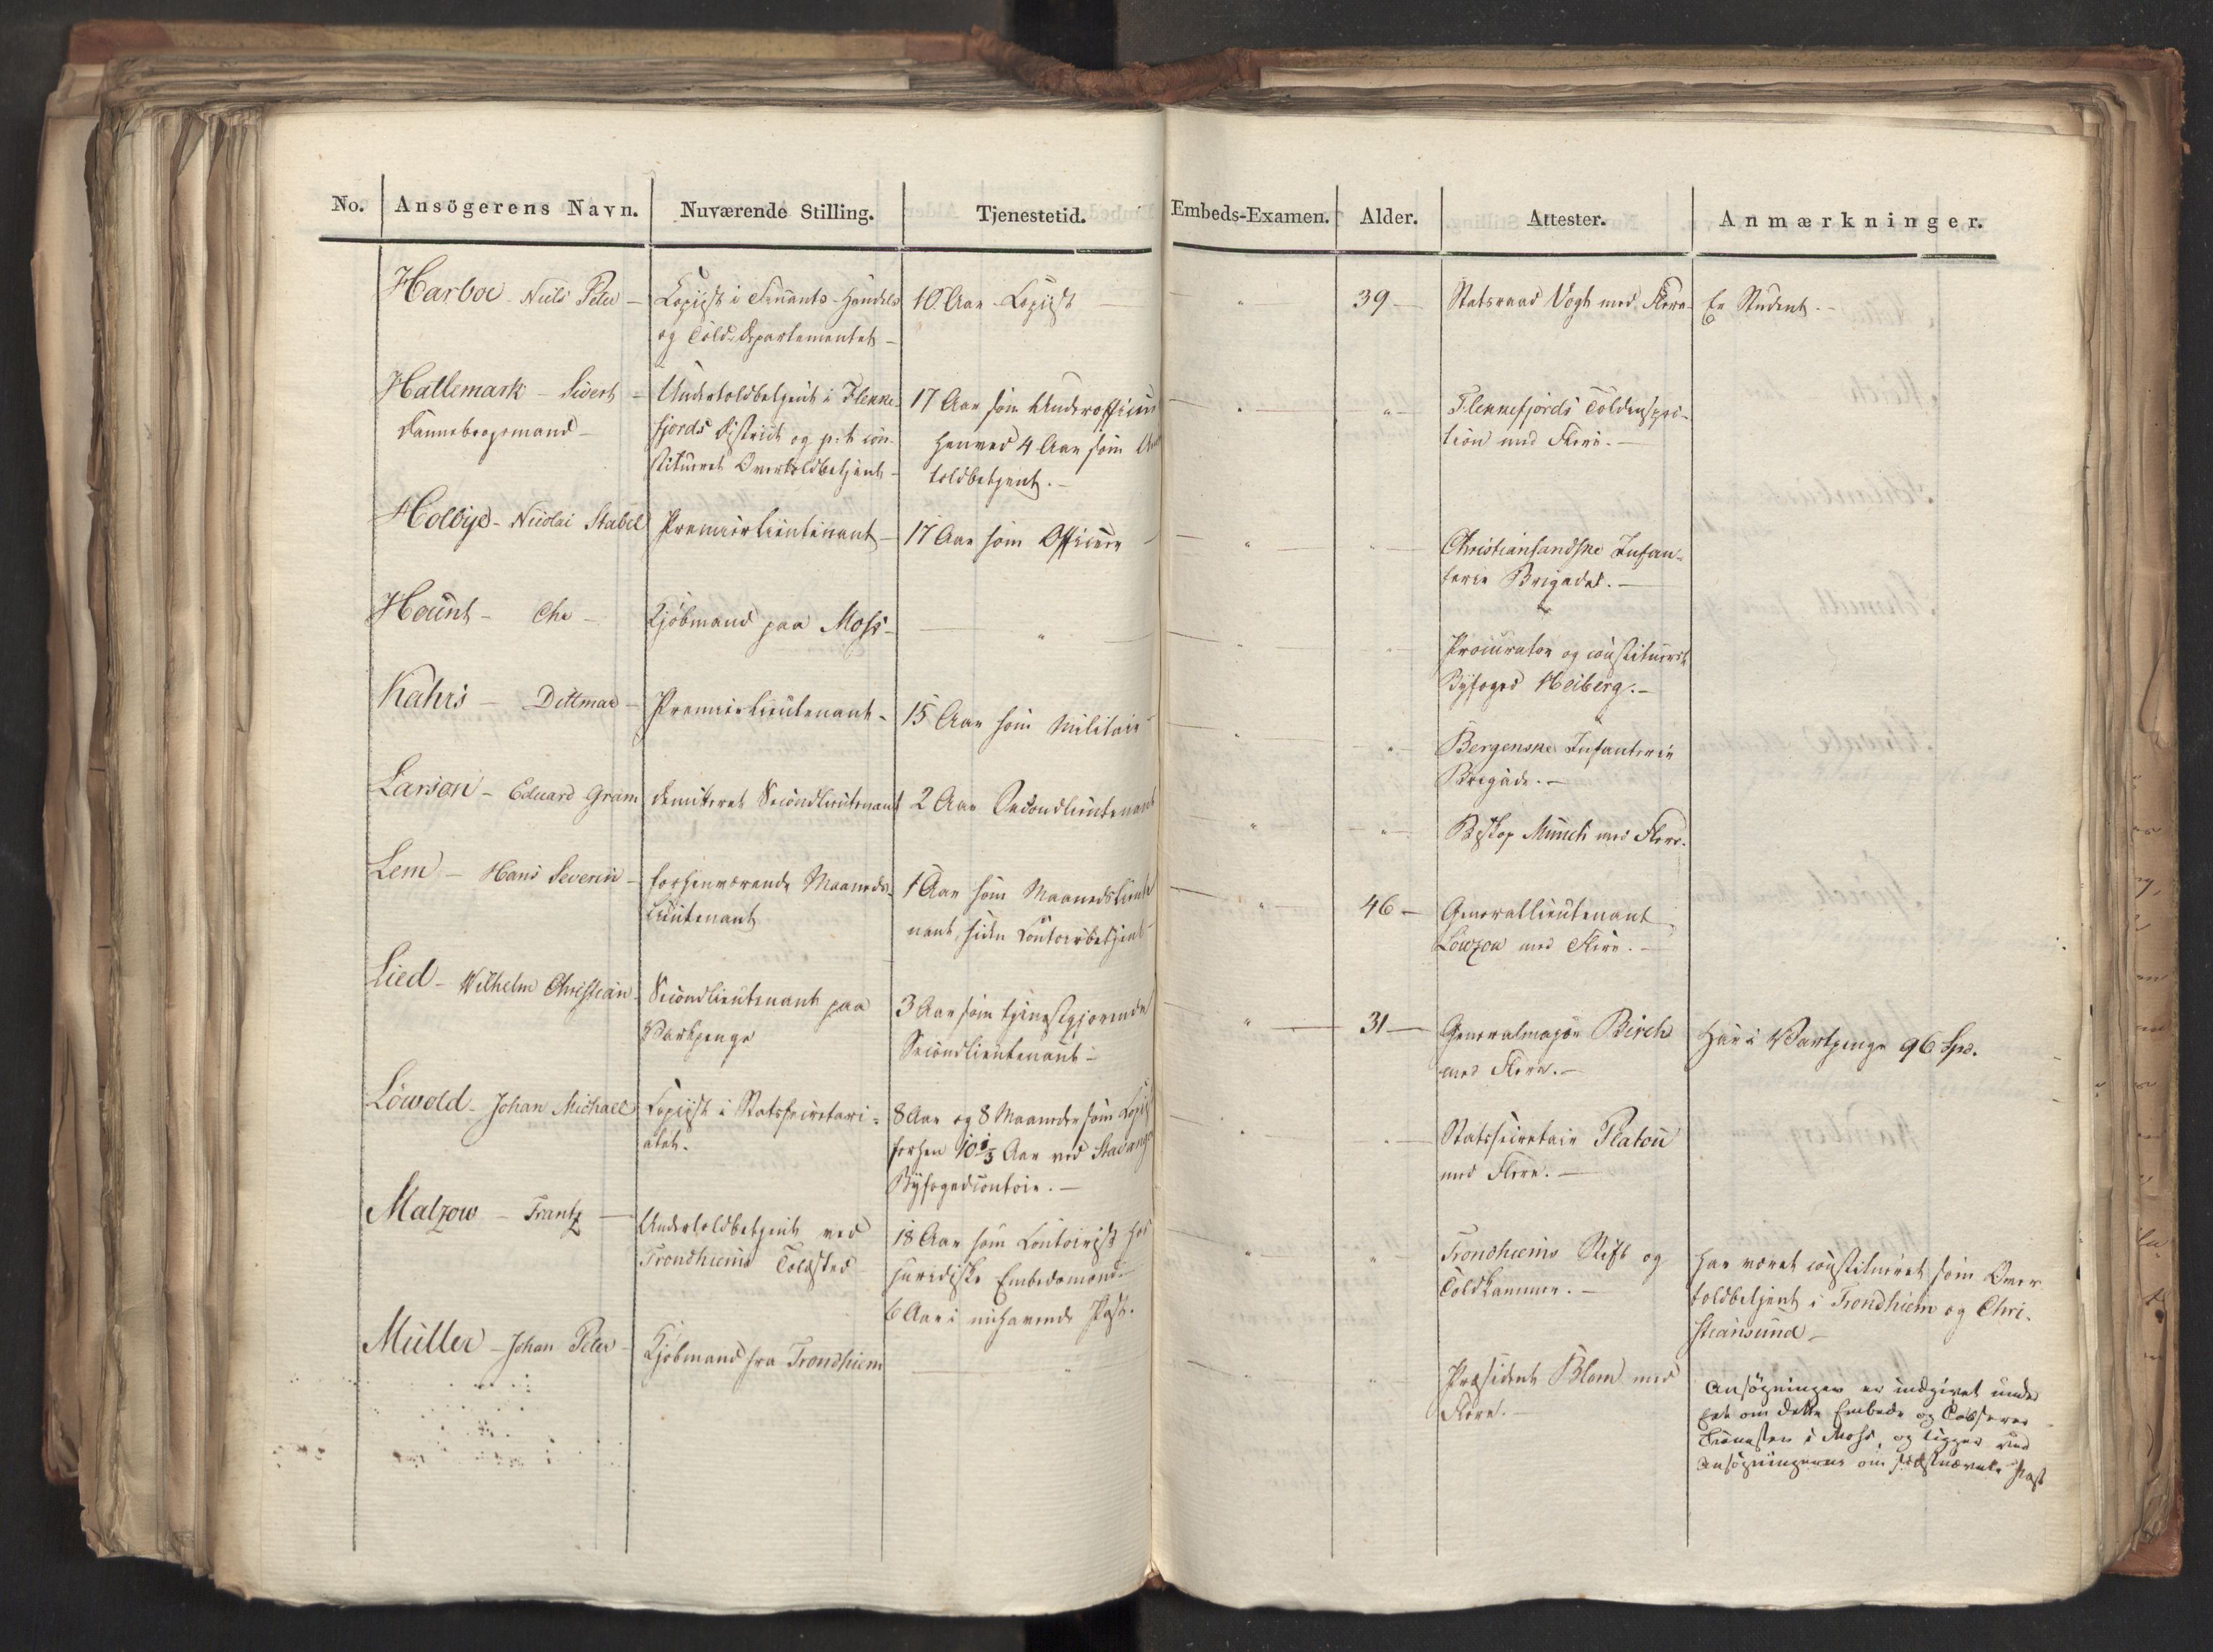 No. Ansögerens Navn. Nuværende Stilling. Tjenestetid. Embeds-Examen. Alder. Attester. Anmærkninger.
Harboe - Niels Peter - Copiist i Finants-Handels 10 Aar Copist — " — 39 — Statsraad Vogt med Flere. Er Student. -
og Told-Departementet -
Hallemark - Sivert - Undertoldbetjent i Flekke- 17 Aar som Underofficier — " — " — Flekkefjords Toldinspec-
Dannebrogsmand - fjords District og p: t: con- henved 4 Aar som tion med Flere. —
stitueret Overtoldbetjent - toldbetjent. -
Holbye - Nicolai Stabel Premierlieutenant - 17 Aar som Officier — " — " — Christiansandske Infan-
terie Brigade. —
Hount - Chr - Kjøbmand paa Moss - — " — " — " — Procurator og constitueret
Byfoged Heiberg. -
Kahrs - Dittmar - Premierlieutenant - 15 Aar som Militair — " — " — Bergenske Infanterie
Brigade. -
Larson - Eduard Gram demitteret Secondlieutenant 2 Aar Secondlieutenant — " — " — Biskop Münch med Flere.
Lem - Hans Severin - forhenværende Maaneds- 1 Aar som Maanedslieute — " — 46 — Generallieutenant
lieutenant nant, siden Contoirbetjent Lowzow med Flere. —
Lied - Wilhelm Christian - Secondlieutenant paa 3 Aar som tjenestgjørende — " — 31 — Generalmajor Birch Har i Vartpenge 96 Spd.
Vartpenge Secondlieutenant - med Flere. -
Löwold - Johan Michael Copiist i Statssecretari- 8 Aar og 8 Maaneder som Copist — " — " — Statssecretair Platou
atet. forhen 10 1/3 Aar ved Stavanger med Flere. —
Byfogedcontoir. —
Malzow - Frantz — Undertoldbetjent ved 18 Aar som Contoirist hos — " — " Trondhiems Stift og Har været constitueret som Over
Trondhiems Toldsted juridiske Embedsmænd Toldkammer. - toldbetjent i Trondhiem og Chri-
6 Aar i nuhavende Post. stiansund -
Müller - Johan Peter - Kjøbmand fra Trondhiem — " — " — " — Præsident Blom med Ansøgningen er indgivet under
Flere. - Eet om dette Embede og
i Moss, og ligger ved
Ansøgningerne om sidstnævnte Post